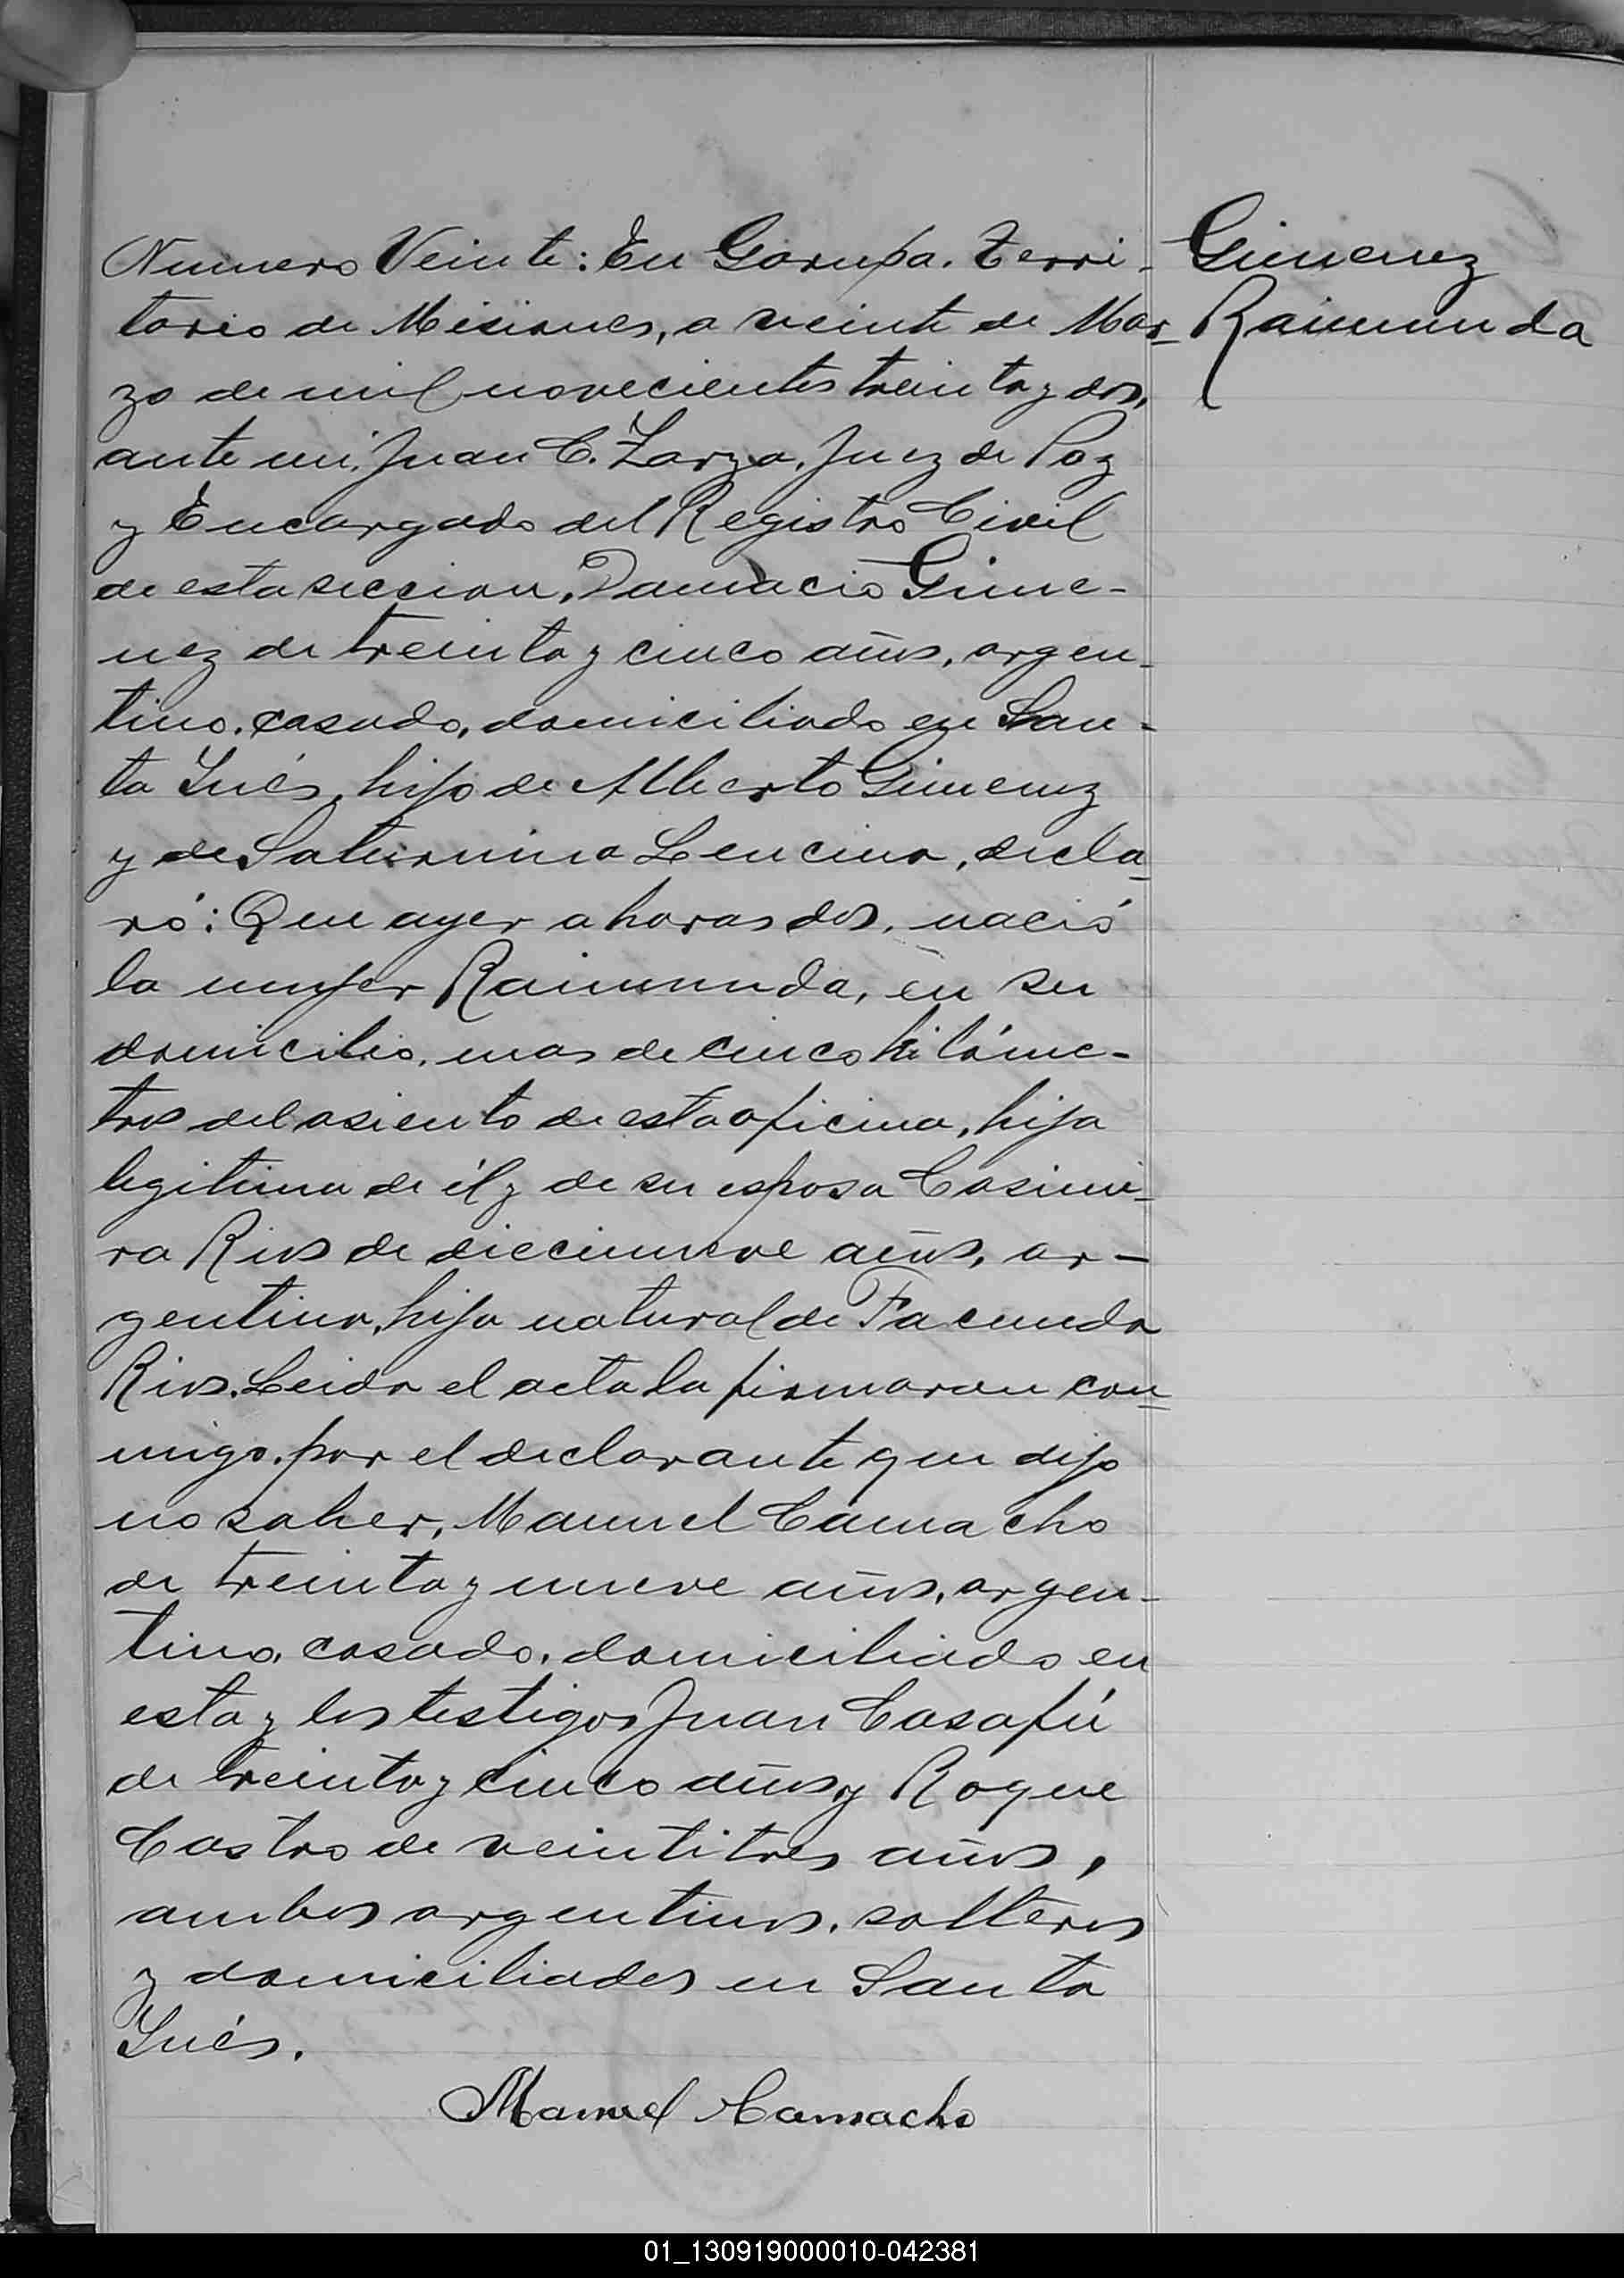 Numero Veinte: En Garupa. Terri-
torio de Misiones, a veinte de Mar-
zo de mil novecientos treinta y dos,
ante mi, Juan C. Zarza, Juez de Paz
y Encargado del Registro Civil
de esta seccion, Damacio Gime-
nez de treinta y cinco años, argen-
tino, casado, domiciliado en San-
ta Inés, hijo de Alberto Gimenez
y de Saturnina Lencina, decla-
ró: Que ayer a horas dos, nació
la mujer Raimunda, en su
domicilio, mas de cinco kilóme-
tros del asiento de esta oficina, hija
legitima de él y de su esposa Casimi-
ra Rios de diecinueve años, ar-
gentina, hija natural de Facunda
Rios. Leida el acta la firmaron con-
migo, por el declarante que dijo
no saber, Manuel Camacho
de treinta y nueve años, argen-
tino, casado, domiciliado en
esta y los testigos Juan Casafú
de treinta y cinco años y Roque
Castro de veintitres años,
ambos argentinos, solteros
y domiciliados en Santa
Inés.
Manuel Camacho
Gimenez
Raimunda
01_130919000010-042381